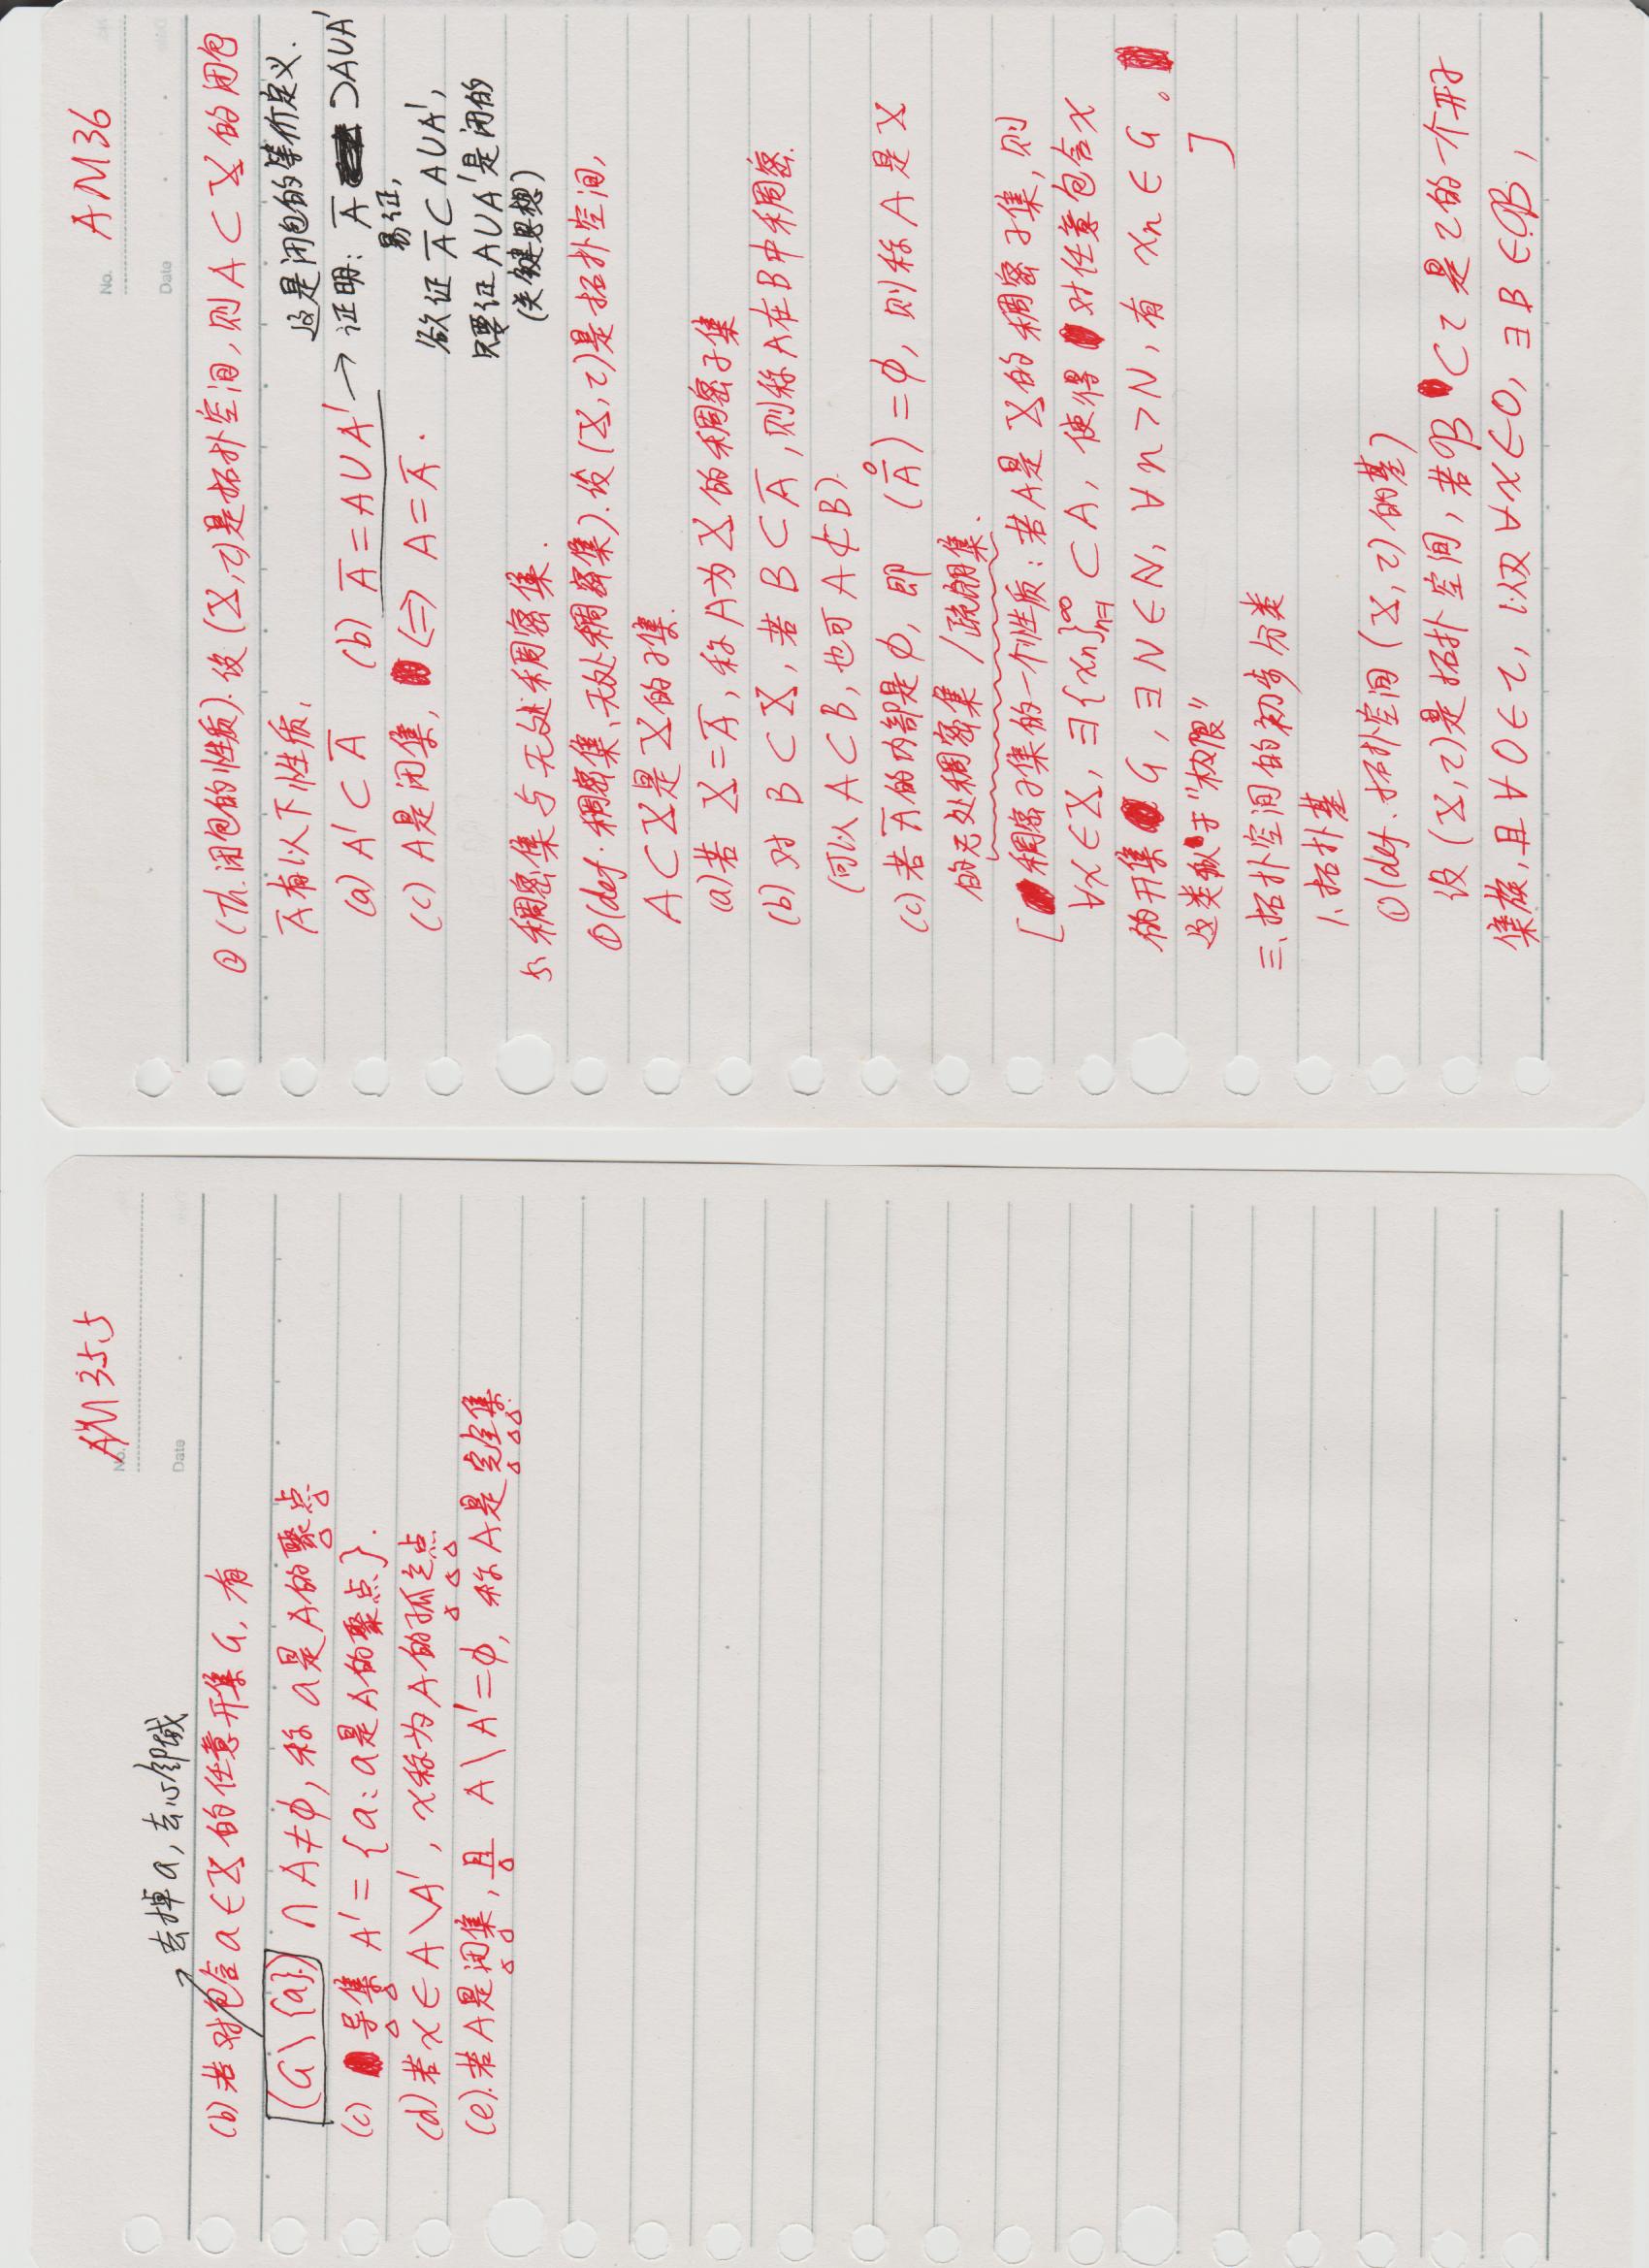 AM35.5
No.
Date
去掉a,去心邻域
(b)若对包含a∈X的任意开集G,有
(G\{a})∩A≠φ,称a是A的聚点
(c) 导集 A'={a:a是A的聚点}.
(d)若x∈A\A',x称为A的孤立点
(e).若A是闭集,且 A\A'=φ,称A是完全集.
AM36
No.
Date
②(Th.闭包的性质).设(X,τ)是拓扑空间,则A⊂X的闭包
Ā有以下性质,
(a) A'⊂Ā (b) Ā=A∪A'
(c) A是闭集, ⇔ A=Ā.
这是闭包的等价定义.
→ 证明: Ā ⊃A∪A'
易证,
欲证 Ā⊂A∪A',
只要证A∪A'是闭的
(关键思想)
5、稠密集与无处稠密集.
①(def.稠密集、无处稠密集).设(X,τ)是拓扑空间,
A⊂X是X的子集.
(a)若 X=Ā,称A为X的稠密子集
(b)对 B⊂X,若 B⊂Ā,则称A在B中稠密.
(可以A⊂B,也可A⊄B).
(c)若Ā的内部是φ,即 (Ā̊)=φ,则称A是X
的无处稠密集/疏朗集.
[稠密子集的一个性质:若A是X的稠密子集,则
∀x∈X,∃{xn}∞n=1⊂A, 使得对任意包含x
的开集 G,∃N∈N,∀n>N,有 xn∈G。
这类似于"极限" ]
三、拓扑空间的初步分类
1、拓扑基
①(def.拓扑空间(X,τ)的基)
设(X,τ)是拓扑空间,若ℬ⊂τ是τ的一个开子
集族,且∀O∈τ,以及∀x∈O,∃B∈ℬ,